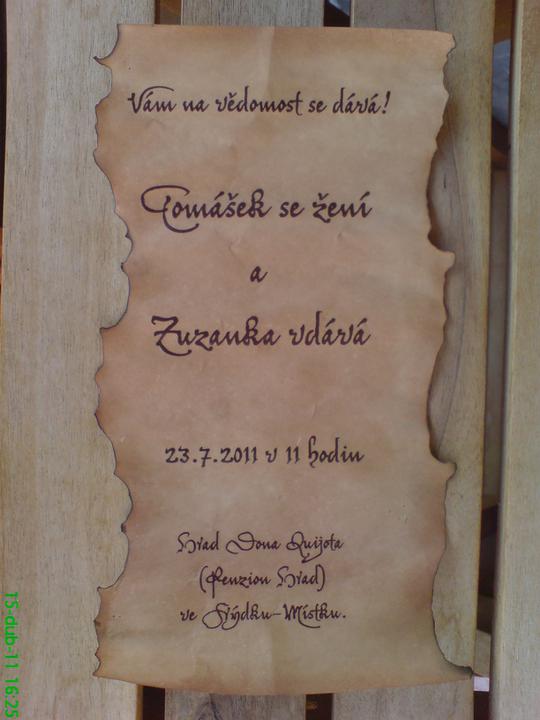 Vám na vědomost se dává!
Tomášek se žení
a
Zuzanka vdává
23.7.2011 v 11 hodin
Hrad Dona Quijota
(Penzion Hrad)
ve Frýdku-Místku.
15-dub-11 16:25